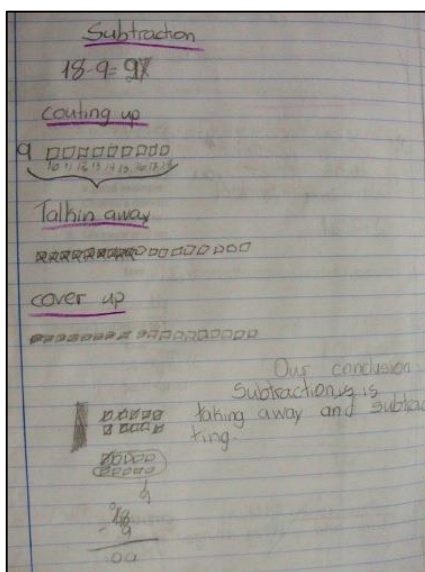 Subtraction
18-9=9
couting up
9
10 11 12 13 14 15 16 17 18
Talkin away
cover up
Our conclusion
Subtraction is is
taking away and subtrac
ting.
9
18
- 9
09